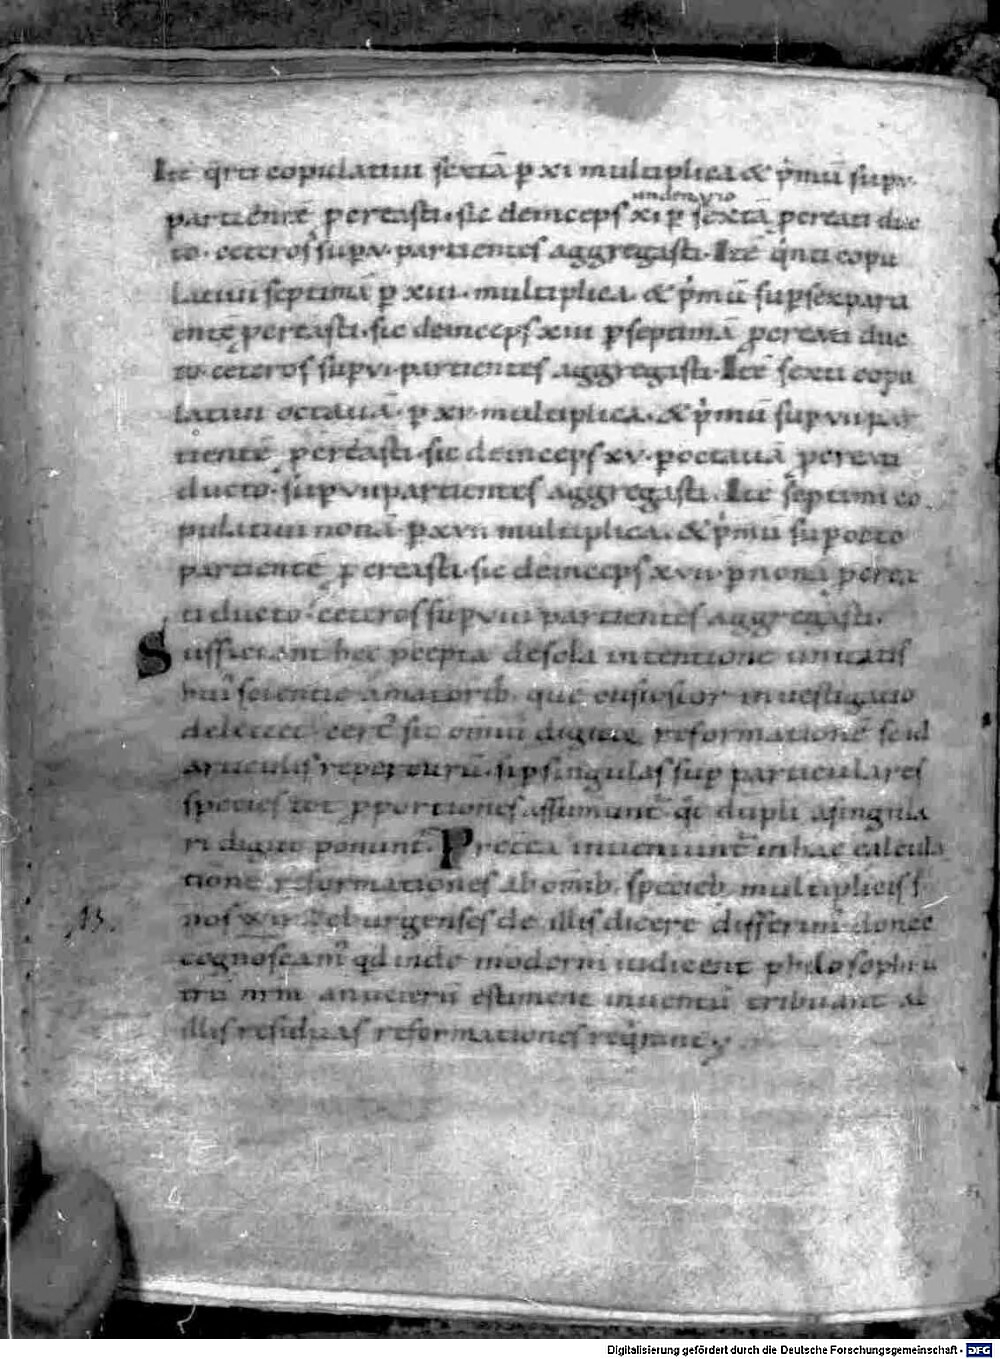 Itē q̄rti copulatim sextā p xi multiplica & p̄mū sup v
undenario
partientē pereasti. sic deinceps xi p sextā pereati duc
to. ceteros sup v. partientes aggregasti. Itē q̄nti copu
latim septimā p xiii. multiplica. & p̄mū sup sex parti
entē pereasti. sic deinceps xiii p septimā pereati duc
to. ceteros sup vi. partientes aggregasti. Itē sexti copu
latim octauā. p xv. multiplica. & p̄mū sup vii par
tientē pereasti. sic deinceps xv. p octauā pereati
ducto. sup vii partientes aggregasti. Itē septimi co
pulatim nonā. p xvii multiplica. & p̄mū sup octo
partientē pereasti. sic deinceps xvii. p nonā perea
ti ducto. ceteros sup viii partientes aggregasti.
Sufficiant hec pcepta de sola intentione unitatis
hui scientie amatorib. que curiosior inuestigatio
delectet. certe sic omniū digitoꝝ reformationē seu
articulis reperturū. si p singulas sup particulares
species tot pportiones assumunt. q̄t dupli a singula
ri digito ponunt. P inueniunt in hac calcula
tione reformationes ab omib. specieb. multiplicis s.
13.
nos wirzeburgenses de illis dicere differim donec
cognoscam qd inde moderni iudicent philosophi u
trū nrm an ueterū estiment inuentū tribuant al
illis residuas reformationes reqrant
Digitalisierung gefördert durch die Deutsche Forschungsgemeinschaft - DFG